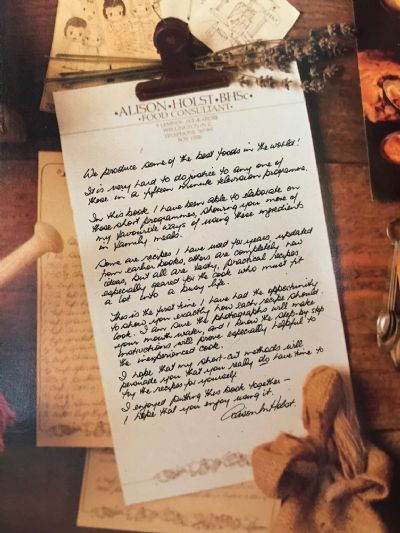 ·ALISON·HOLST·BHSc·
·FOOD CONSULTANT·
WELLINGTON
TELEPHONE
BOX
We produce some of the best foods in the world!
It is very hard to do justice to any one of
these in a fifteen minute television programme.
In this book I have been able to elaborate on
these short programmes, showing you more of
my favourite ways of using these ingredients
in family meals.
Some are recipes I have used for years, updated
from earlier books, others are completely new
ideas, but all are tasty, practical recipes
especially geared for the cook who must fit
a lot into a busy life.
This is the first time I have had the opportunity
to show you exactly how each recipe should
look. I am sure the photographs will make
your mouth water, and I know the step-by step
instructions will prove especially helpful to
the inexperienced cook.
I hope that my short-cut methods will
persuade you that you really do have time to
try the recipes for yourself.
I enjoyed putting this book together –
I hope that you enjoy using it.
Alison M Holst.